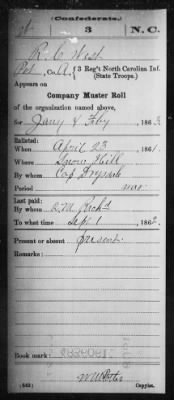 Confederate.
3 N.C.
R. C. West
Pvt, Co. A, 3 Reg't North Carolina Inf.
(State Troops.)
Appears on
Company Muster Roll
of the organization named above,
for Jany & Feby 1863
Enlisted:
When April 23 1861.
Where Snow Hill
By whom
Period war
Last paid:
By whom
To what time Sept 1 1862.
Present or absent Present
Remarks:
Book mark:
(642) Copyist.